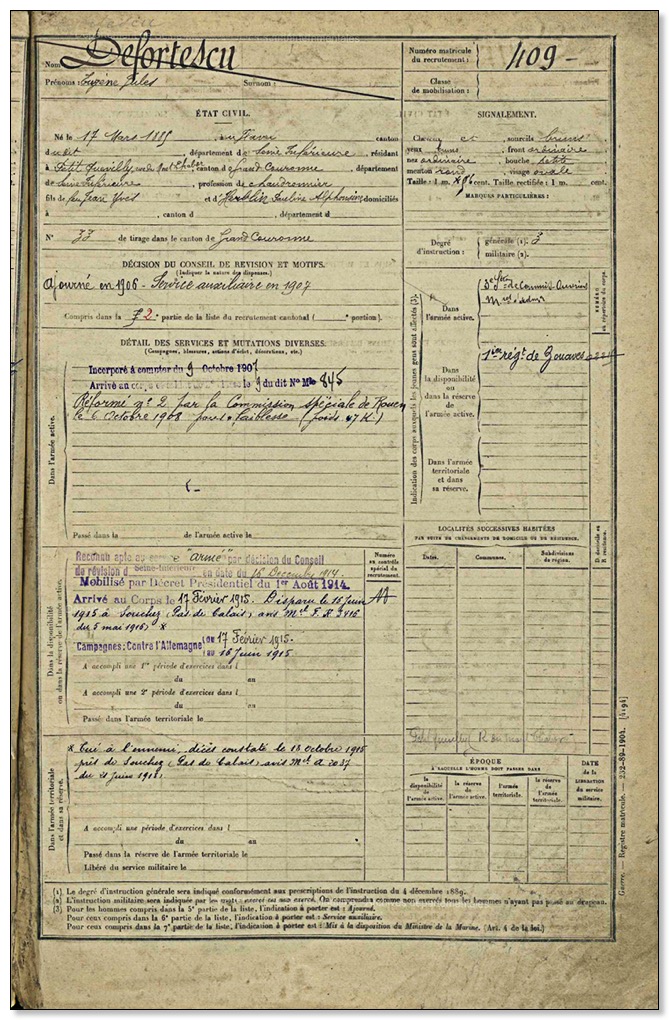 Nom Defortescu
Prénoms : Eugène Jules Surnom :
Numéro matricule
du recrutement : 409
Classe
de mobilisation :
ÉTAT CIVIL.
Né le 17 Mars 1885, au Havre canton
dudit, département de Seine Inférieure, résidant
à Petit Quevilly canton de Grand Couronne, département
de Seine Inférieure, profession de chaudronnier
fils de feu Jean Yves et d'Hamblin Pauline Alphonsine domiciliés
à , canton d , département d
N° 33 de tirage dans le canton de Grand Couronne
SIGNALEMENT.
sourcils bruns
yeux front ordinaire
nez ordinaire, bouche petite
menton rond, visage ovale
Taille : 1 m. cent. Taille rectifiée : 1 m. cent.
MARQUES PARTICULIÈRES :
Degré
d'instruction :
générale (1). 3
militaire (2).
DÉCISION DU CONSEIL DE REVISION ET MOTIFS.
(Indiquer la nature des dispenses.)
Ajourné en 1906 - Service auxiliaire en 1907
Compris dans la 2e partie de la liste du recrutement cantonal ( e portion).
DÉTAIL DES SERVICES ET MUTATIONS DIVERSES.
(Campagnes, blessures, actions d'éclat, décorations, etc.)
Dans l'armée active.
Incorporé à compter du 9 Octobre 1907
Arrivé au corps le 9 du dit No Mle 845
Réformé n° 2 par la Commission spéciale de Rouen
le 6 Octobre 1908 pour faiblesse (poids 47 K.)
Passé dans la de l'armée active le
Dans la disponibilité
ou dans la réserve de l'armée active.
Reconnu apte au service "armé" par décision du Conseil
de révision d Seine-Inférieure en date du 16 Décembre 1914
Mobilisé par Décret Présidentiel du 1er Août 1914.
Arrivé au Corps le 17 Février 1915. Disparu le 16 juin
1915 à Souchez (Pas de Calais), avis Mel F. R 3415
du 5 mai 1916) *
Campagnes : Contre l'Allemagne du 17 Février 1915
au 16 Juin 1915
A accompli une 1re période d'exercices dans l
du au
A accompli une 2e période d'exercices dans l
du au
Passé dans l'armée territoriale le
Numéro
au contrôle
spécial du
recrutement.
Dans l'armée territoriale
et dans sa réserve.
* Tué à l'ennemi, décès constaté le 13 Octobre 1915
près de Souchez (Pas de Calais) avis Mel A 2037
A accompli une période d'exercices dans l
du au
Passé dans la réserve de l'armée territoriale le
Libéré du service militaire le
Indication des corps auxquels les jeunes gens sont affectés (3).
Dans
l'armée active.
Dans
la disponibilité
ou dans la réserve
de l'armée active.
1er régt de Zouaves
Dans l'armée
territoriale
et dans
sa réserve.
NUMÉRO
au répertoire du corps.
LOCALITÉS SUCCESSIVES HABITÉES
PAR SUITE DE CHANGEMENTS DE DOMICILE OU DE RÉSIDENCE.
Dates. Communes. Subdivisions
de région.
D. domicile ou
R. résidence.
Petit Quevilly
ÉPOQUE
À LAQUELLE L'HOMME DOIT PASSER DANS
la
disponibilité
de l'armée active.
la réserve
de
l'armée active.
l'armée
territoriale.
la réserve
de
l'armée
territoriale.
DATE
de la
LIBÉRATION
du service
militaire.
(1) Le degré d'instruction générale sera indiqué conformément aux prescriptions de l'instruction du 4 décembre 1889.
(2) L'instruction militaire sera indiquée par les mots : exercé ou non exercé. On comprendra comme non exercés tous les hommes n'ayant pas passé au drapeau.
(3) Pour les hommes compris dans la 5e partie de la liste, l'indication à porter est : Ajourné.
Pour ceux compris dans la 6e partie de la liste, l'indication à porter est : Service auxiliaire.
Pour ceux compris dans la 7e partie de la liste, l'indication à porter est : Mis à la disposition du Ministre de la Marine. (Art. 4 de la loi.)
Guerre. — Registre matricule. — 232-89-1904. [4194]